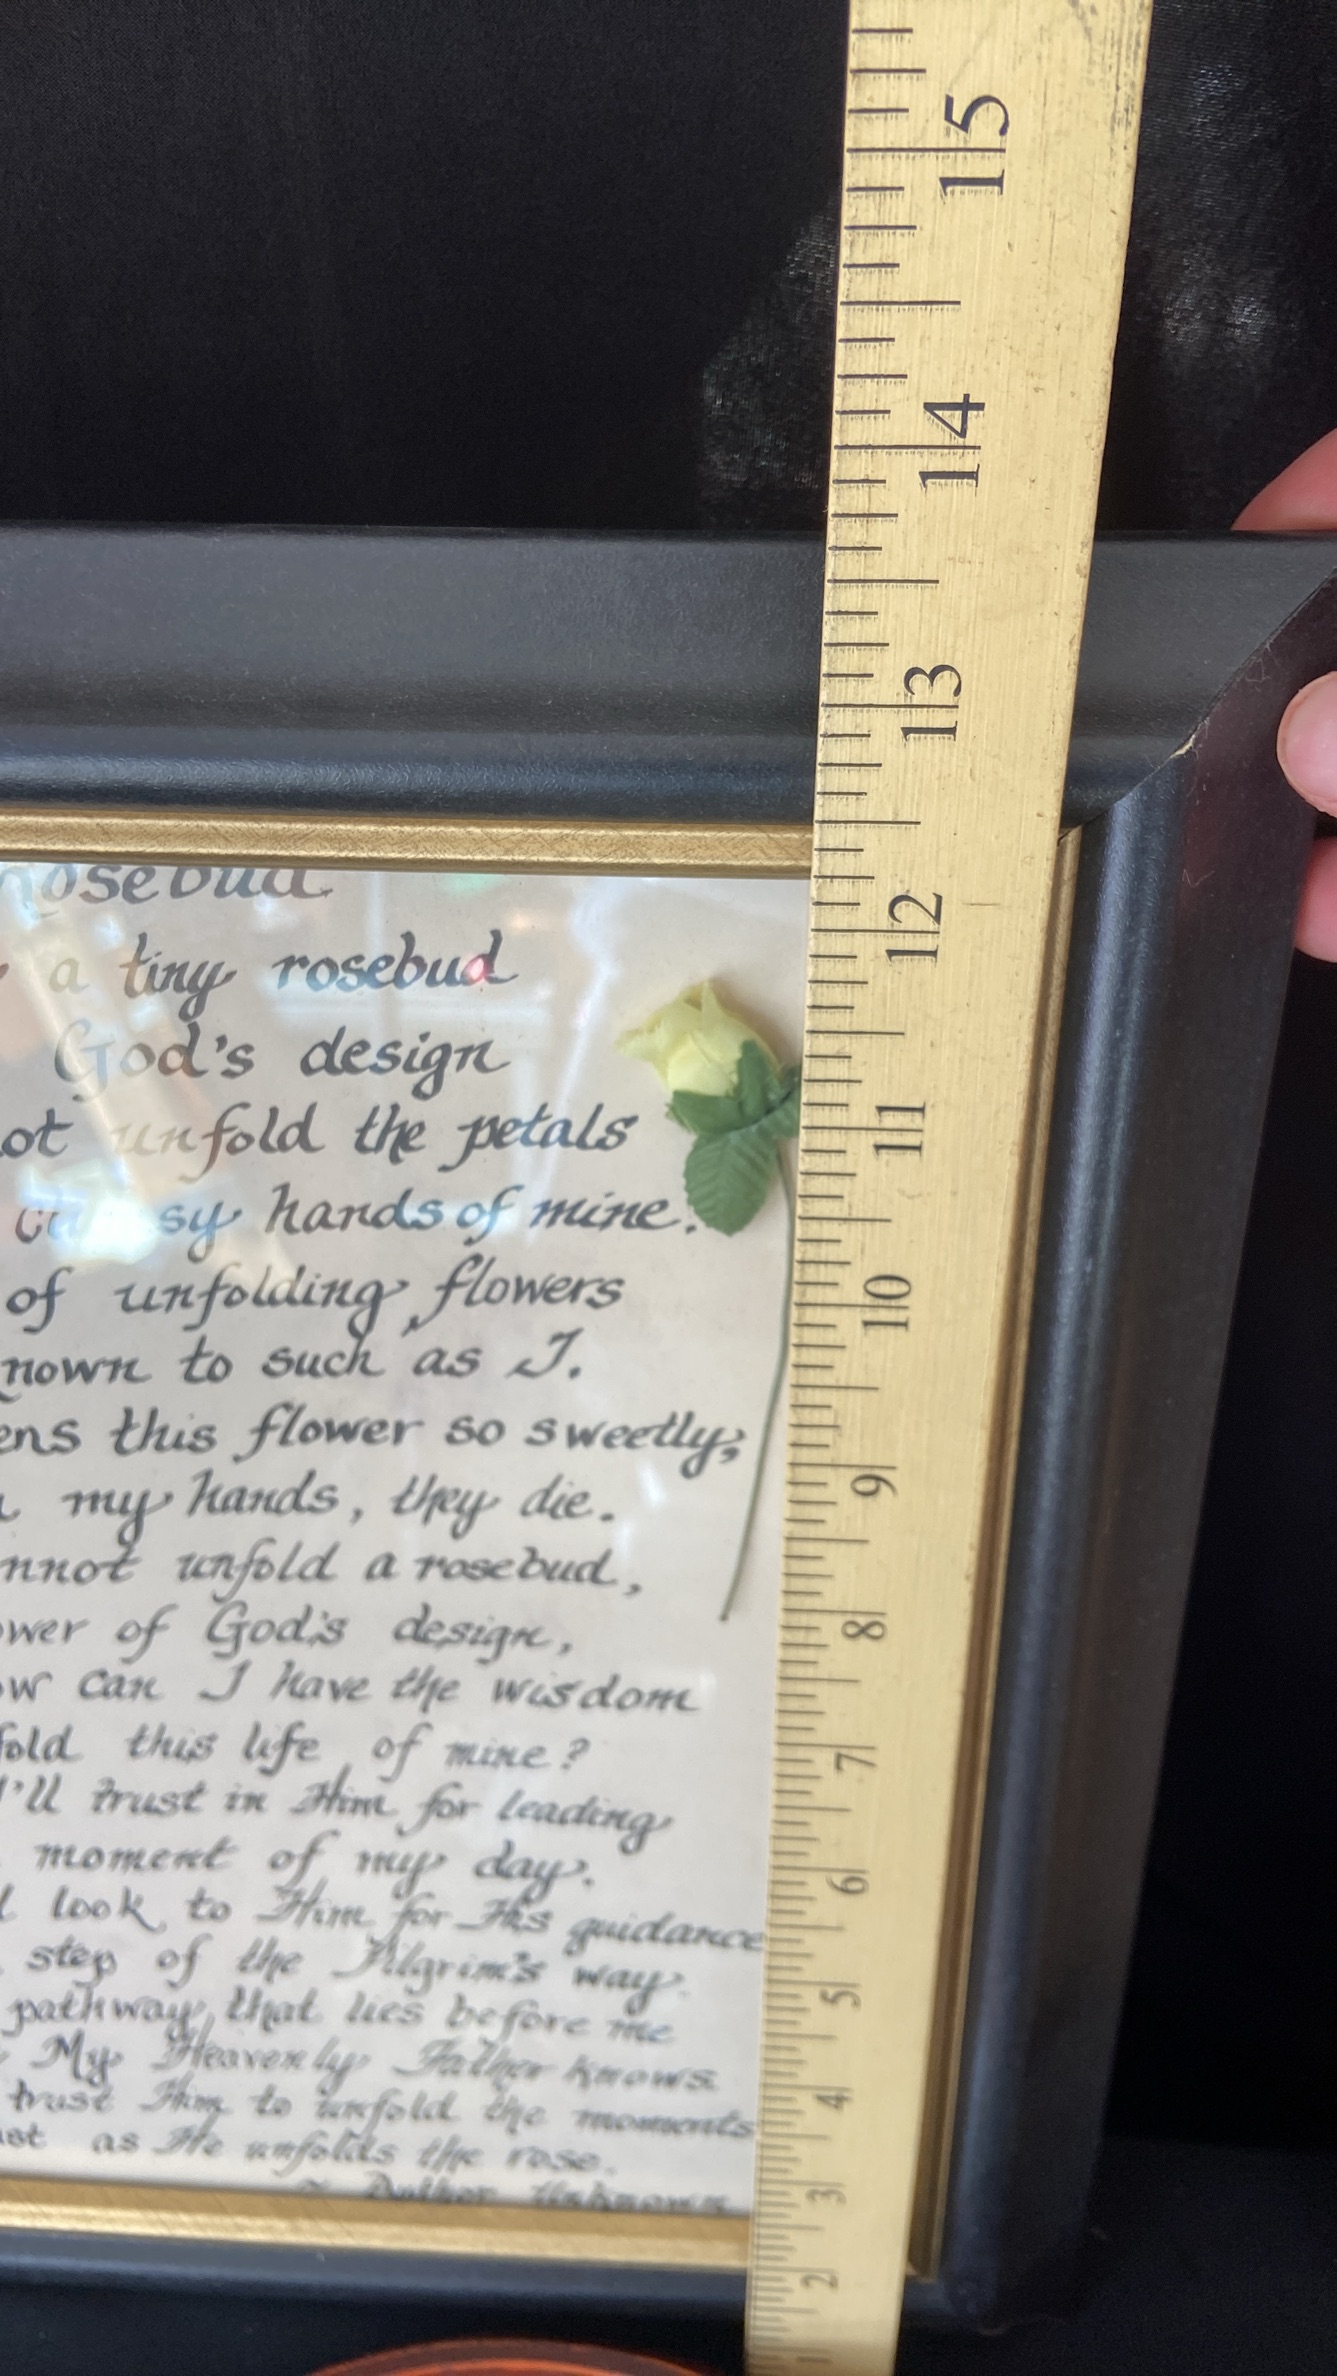 rosebud
a tiny rosebud
God's design
ot unfold the petals
sy hands of mine.
of unfolding flowers
nown to such as I.
ens this flower so sweetly,
my hands, they die.
nnot unfold a rosebud,
ower of God's design,
ow can I have the wisdom
fold this life of mine?
I'll trust in Him for leading
moment of my day.
look to Him for His guidance
step of the Pilgrim's way.
pathway that lies before me
My Heavenly Father knows.
trust Him to unfold the moments
ust as He unfolds the rose.
~ Author Unknown
15
14
13
12
11
10
9
8
7
6
5
4
3
2
1